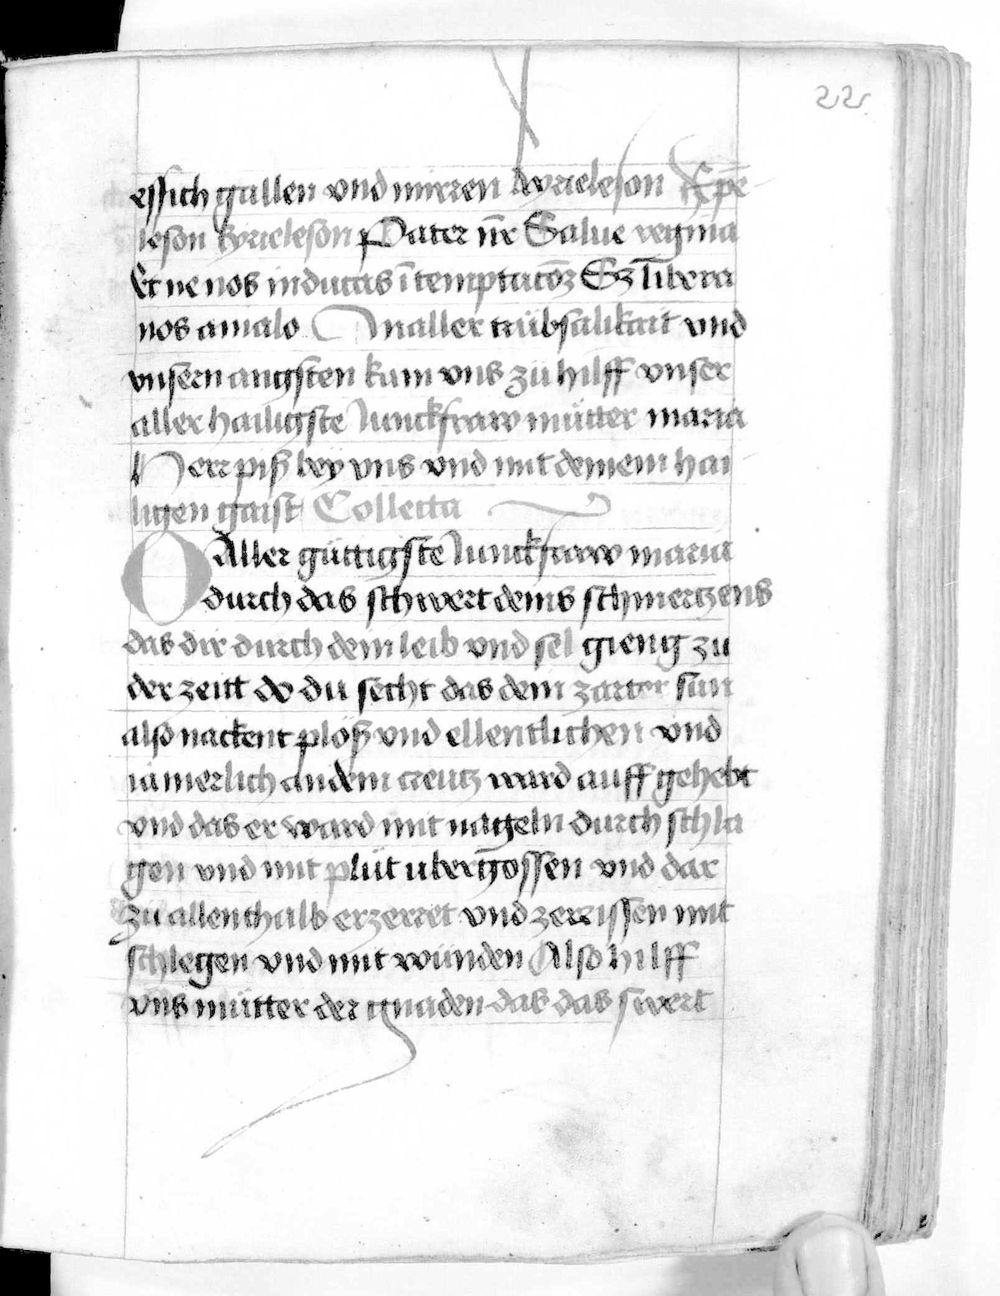 22
essich gallen vnd mirren kyrieleson Xpe
leson kyrieleson Pater nr̄ Salue regina
Et ne nos inducas ī temptatōz Sz libera
nos amalo In aller trübsalikait vnd
vnsern angsten kum vns zü hilff vnser
aller hailigste Junckfraw mütter maria
Herr piß bey vns vnd mit deinem hai
ligen gaist Collecta
O Aller güttigste Junckfraw maria
durch das schwert deins schmertzens
das dir durch dein leib vnd sel gieng zu
der zeitt do du secht das dein zarter sun
also nackent ploß vnd ellentlichen vnd
iamerlich an dem creutz ward auff gehebt
vnd das er ward mit nageln durch schla
gen vnd mit plüt vbergossen vnd dar
zu allenthalb erzerret vnd zerrissen mit
schlegen vnd mit wünden Also hilff
vns mütter der gnaden das das swert